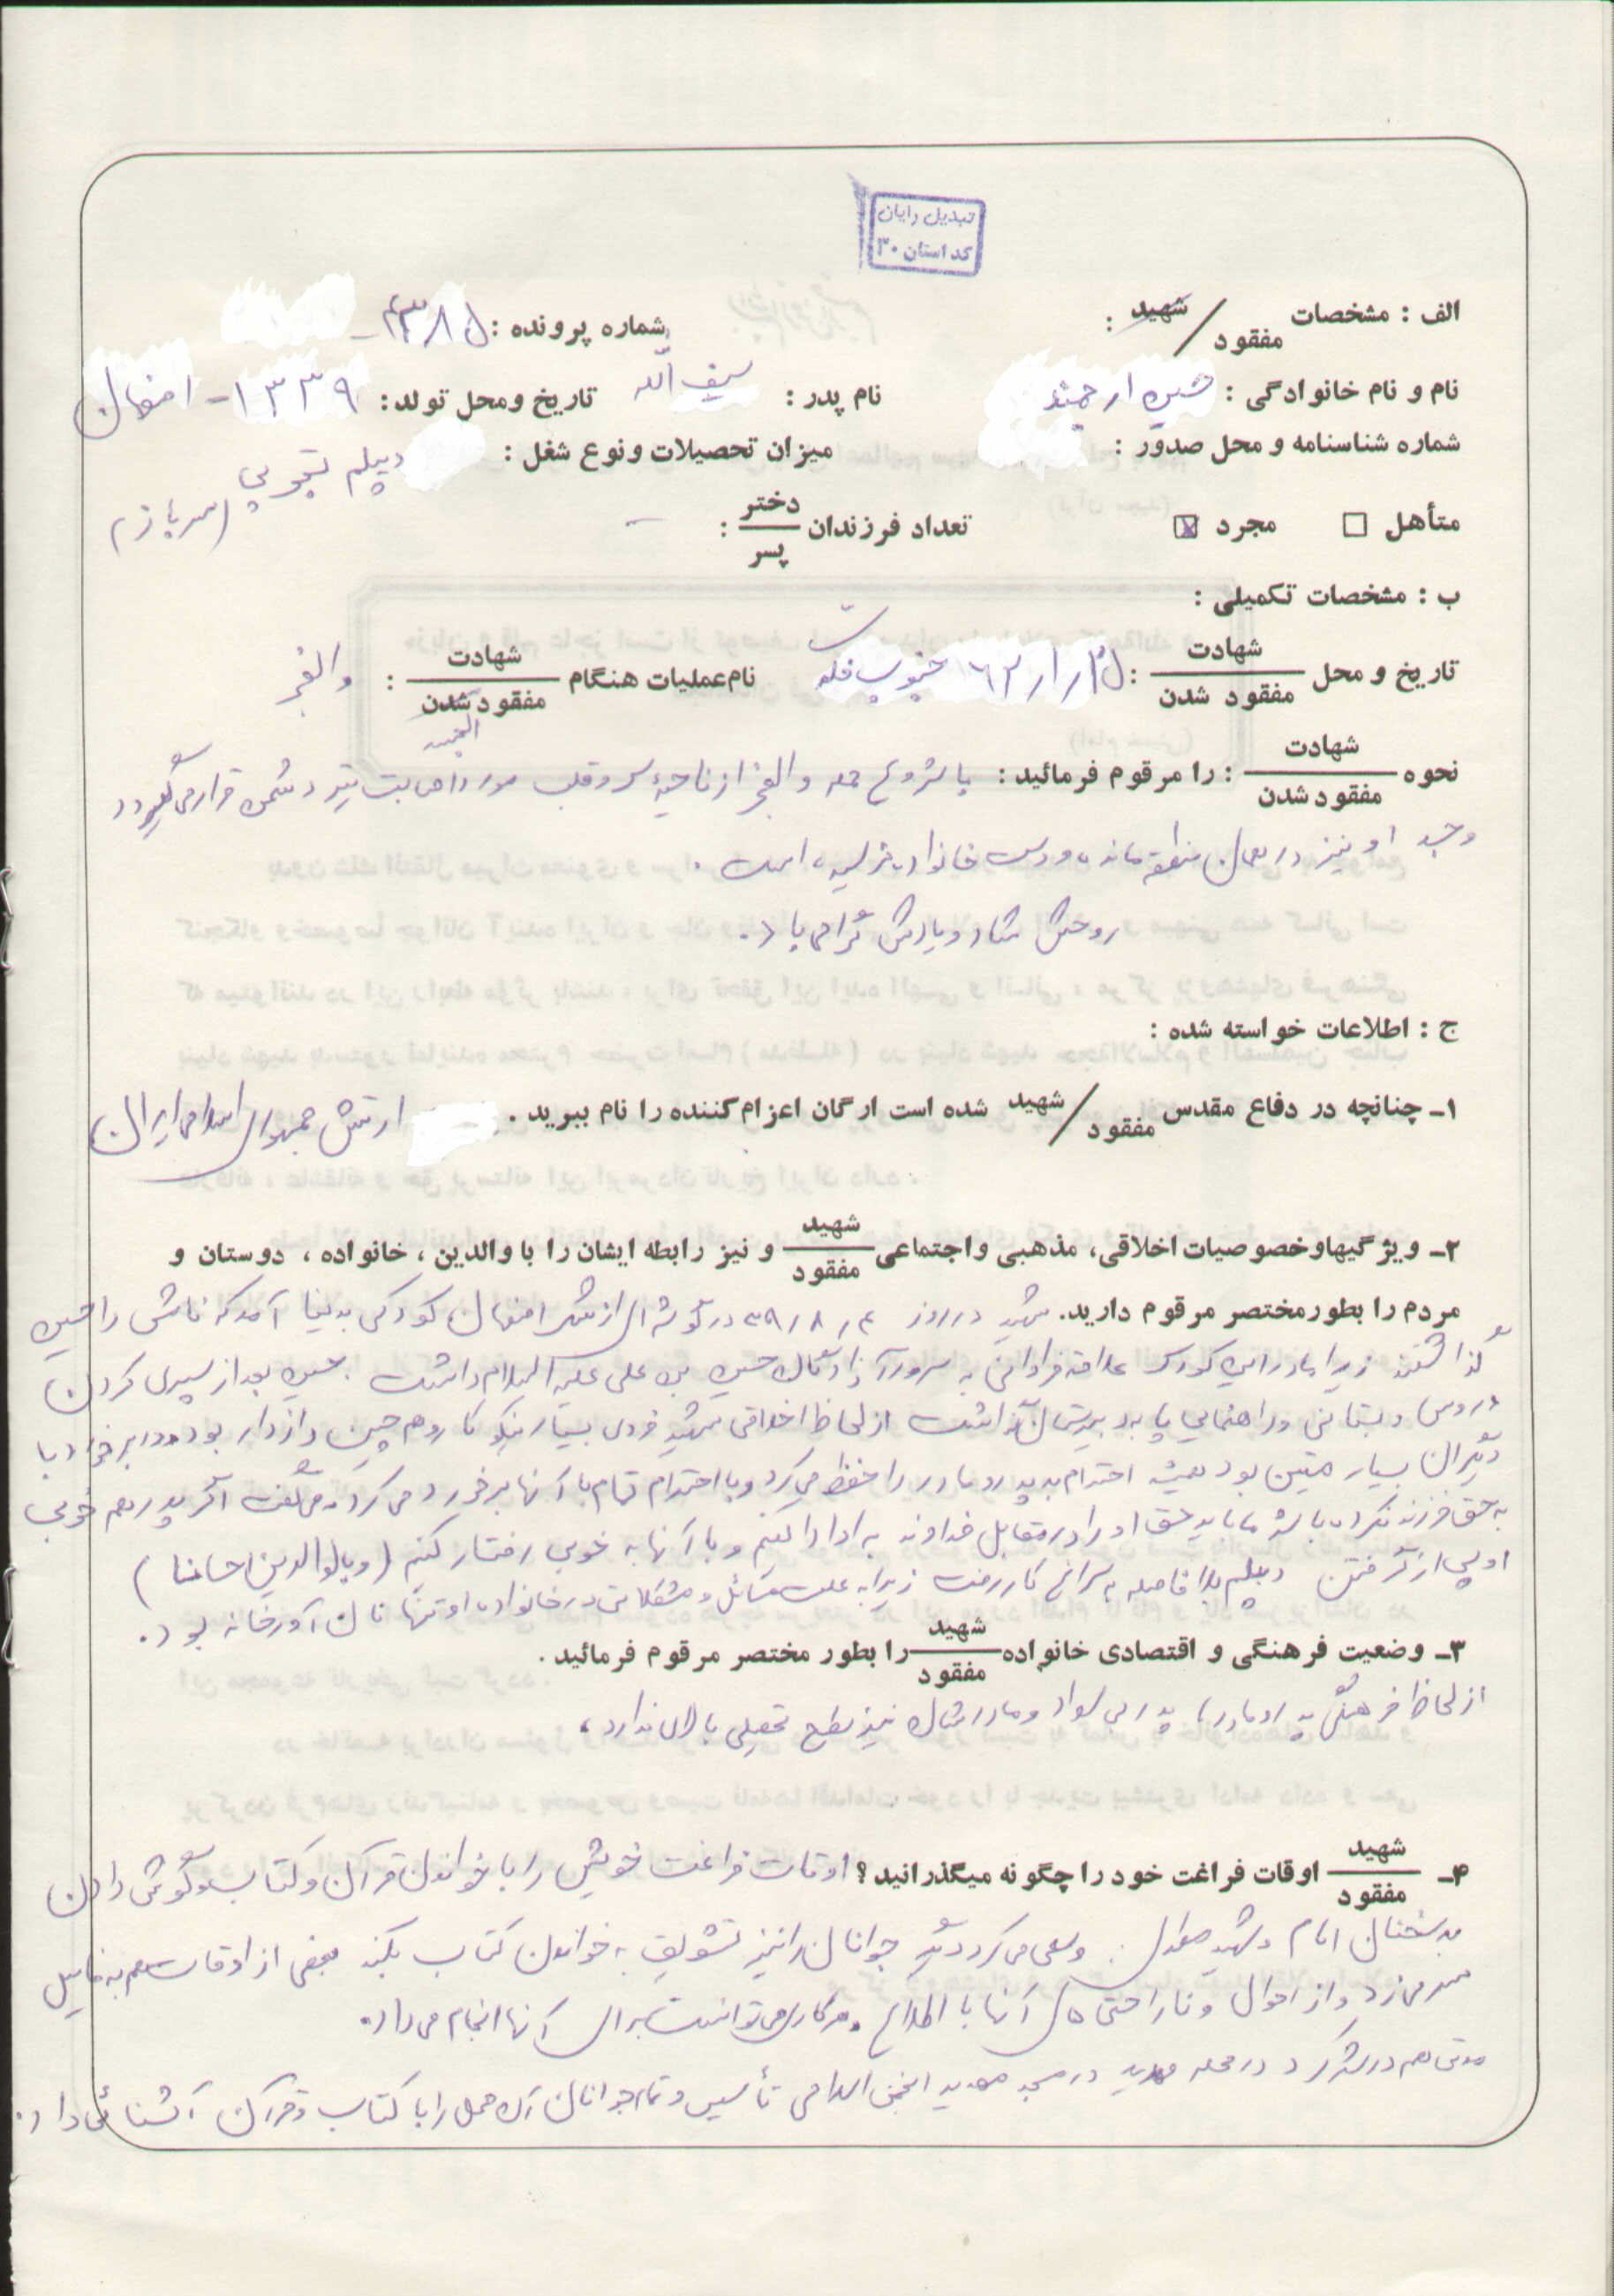 تبدیل رایان
کد استان ۳۰
الف : مشخصات شهید / مفقود :
شماره پرونده : ۴۳۸۵
نام و نام خانوادگی : حسین ارجمند
نام پدر : سیف الله
تاریخ ومحل تولد : ۱۳۳۹ - اصفهان
شماره شناسنامه و محل صدور :
میزان تحصیلات ونوع شغل : دیپلم تجربی (سرباز)
متأهل مجرد
تعداد فرزندان دختر / پسر : -
ب : مشخصات تکمیلی :
تاریخ و محل شهادت / مفقود شدن : ۶۲/۱/۲۵ جنوب فکه
نام عملیات هنگام شهادت / مفقود شدن : والفجر
نحوه شهادت / مفقود شدن : را مرقوم فرمائید : با شروع حمله والفجر از ناحیه سر و قلب مورد اصابت تیر دشمن قرار می گیرد
و جسد او نیز در همان منطقه مانده و بدست خانواده نرسیده است .
روحش شاد و یادش گرامی باد .
ج : اطلاعات خواسته شده :
۱ـ چنانچه در دفاع مقدس شهید / مفقود شده است ارگان اعزام کننده را نام ببرید . ارتش جمهوری اسلامی ایران
۲ـ ویژگیهاوخصوصیات اخلاقی، مذهبی واجتماعی شهید / مفقود و نیز رابطه ایشان را با والدین ، خانواده ، دوستان و
مردم را بطورمختصر مرقوم دارید. شهید در روز ۳۹/۸/۴ در گوشه ای از شهر اصفهان کودکی بدنیا آمد که نامش را حسین
گذاشتند زیرا مادر این کودک علاقه فراوانی به سرور آزادگان حسین بن علی علیه السلام داشت . حسین بعد از سپری کردن
دروس دبستانی و راهنمایی پا به دبیرستان گذاشت از لحاظ اخلاقی شهید فردی بسیار نیکوکار و هم چنین رازدار بود در برخورد با
دیگران بسیار متین بود همیشه احترام به پدر و مادر را حفظ می کرد و با احترام تمام با آنها برخورد می کرد و می گفت اگر پدر هم خوبی
به حق فرزند نکرده باشد ما باید حق او را در مقابل خداوند به ادا کنیم و با آنها به خوبی رفتار کنیم (و بالوالدین احسانا)
او پس از گرفتن دیپلم بلافاصله به سراغ کار رفت زیرا به علت مسائل و مشکلاتی در خانواده او تنها نان آور خانه بود .
۳ـ وضعیت فرهنگی و اقتصادی خانواده شهید / مفقود را بطور مختصر مرقوم فرمائید .
از لحاظ فرهنگی پدر و مادر، پدر بی سواد و مادرشان نیز سطح تحصیلی بالای ندارد ،
۴ـ شهید / مفقود اوقات فراغت خود را چگونه میگذرانید ؟ اوقات فراغت خویش را با خواندن قرآن و کتاب و گوش دادن
به سخنان امام و شهید . وسعی می کرد دیگر جوانان را نیز تشویق به خواندن کتاب بکند بعضی از اوقات هم به فامیل
سر می زد و از احوال و ناراحتی های آنها با اطلاع و هر کاری می توانست برای آنها انجام می داد .
مدتی هم در شهرکرد در محله مهدیه در مسجد مهدیه انجمن اسلامی تأسیس و تمام جوانان آن محل را با کتاب و قرآن آشنائی داد .